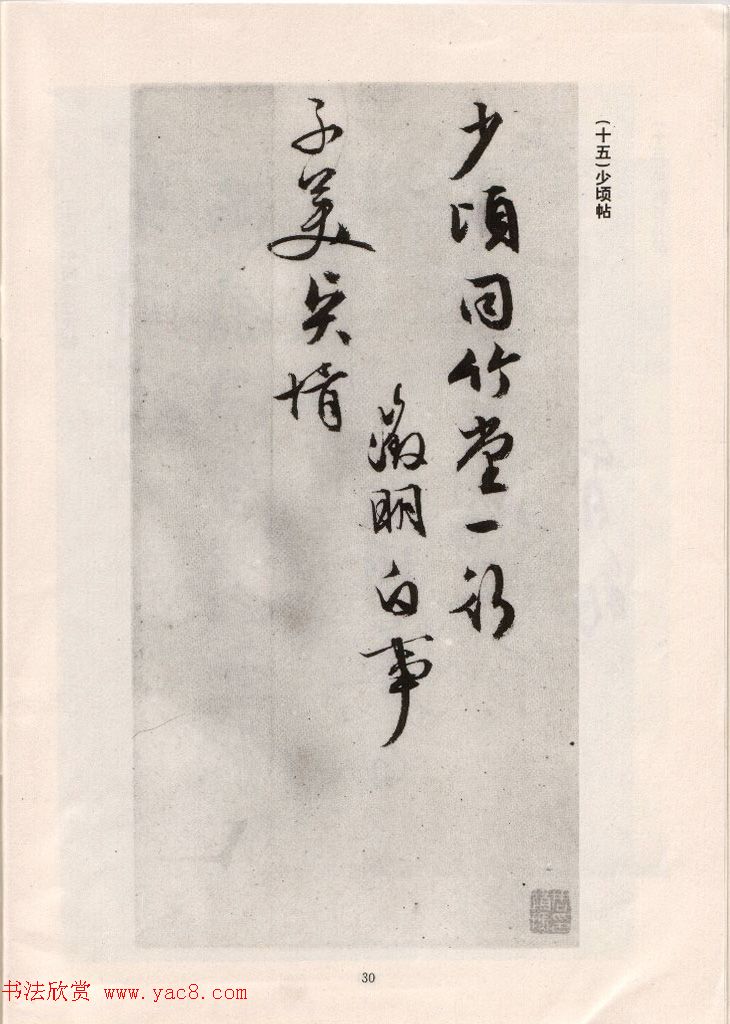 (十五)少顷帖
少頃同竹堂一行
徵明白事
子美吳情
30
书法欣赏 www.yac8.com